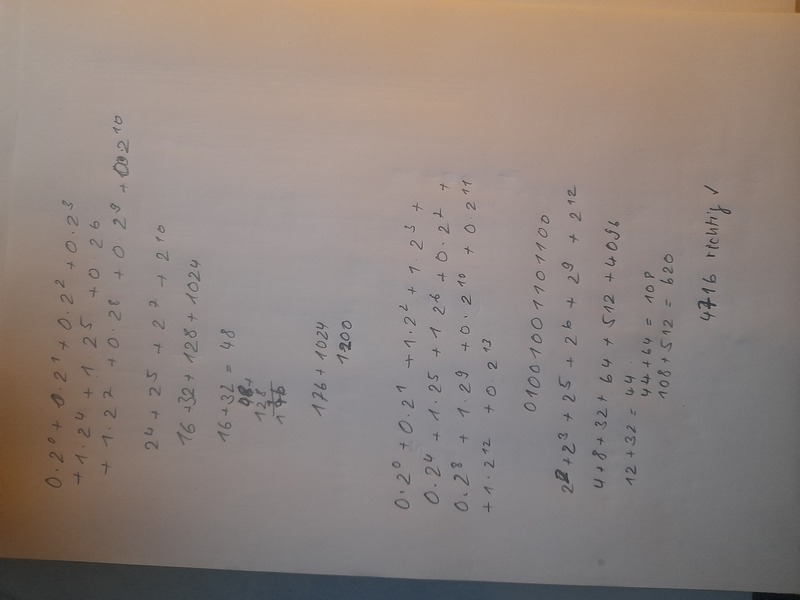 0·2⁰ + 0·2¹ + 0·2² + 0·2³
+ 1·2⁴ + 1·2⁵ + 0·2⁶
+ 1·2⁷ + 0·2⁸ + 0·2⁹ + 2¹⁰
2⁴ + 2⁵ + 2⁷ + 2¹⁰
16+32+128+1024
16+32 = 48
48+
128
176
176+1024
1200
0·2⁰ + 0·2¹ + 1·2² + 1·2³ +
0·2⁴ + 1·2⁵ + 1·2⁶ + 0·2⁷ +
0·2⁸ + 1·2⁹ + 0·2¹⁰ + 0·2¹¹
+ 1·2¹² + 0·2¹³
01001001101100
2² + 2³ + 2⁵ + 2⁶ + 2⁹ + 2¹²
4+8+32+64+512+4096
12+32 = 44
44+64 = 108
108+512 = 620
4716 richtig ✓